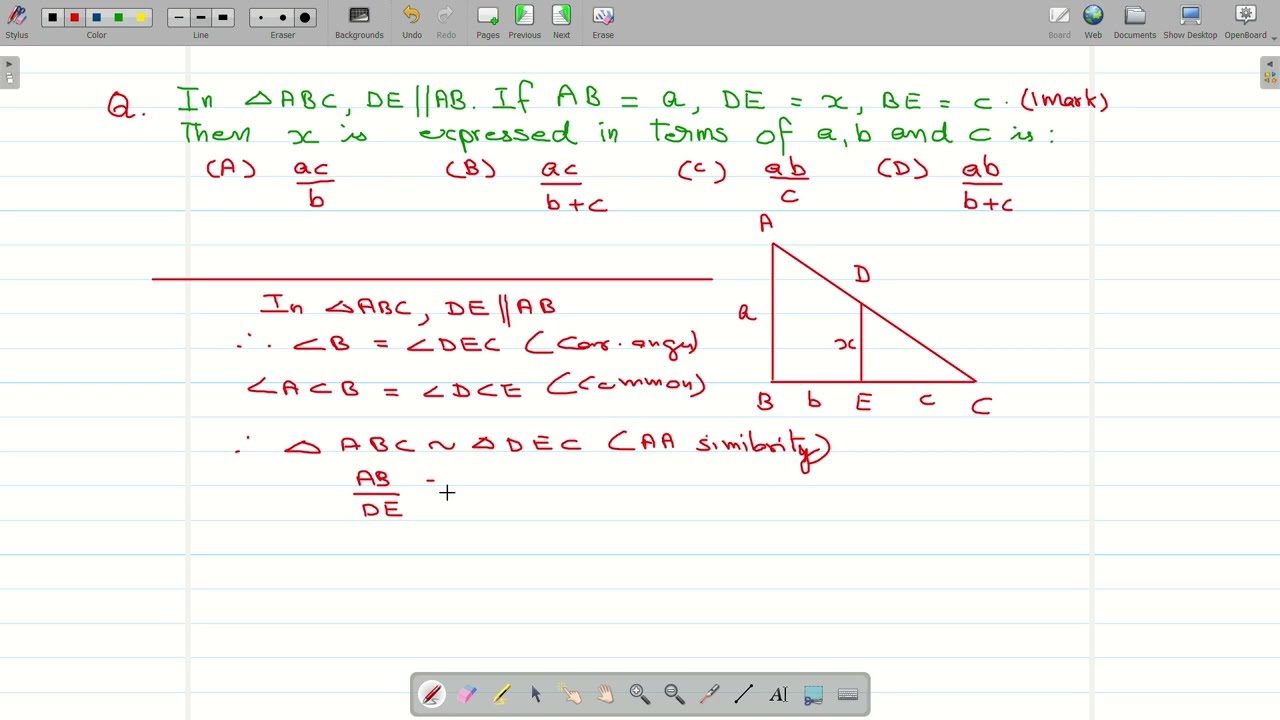 Stylus
Color
Line
Eraser
Backgrounds
Undo
Redo
Pages
Previous
Next
Erase
Board
Web
Documents
Show Desktop
OpenBoard
Q. In △ABC, DE ∥ AB. If AB = a, DE = x, BE = c. (1mark)
Then x is expressed in terms of a, b and c is:
(A) ac/b (B) ac/b+c (C) ab/c (D) ab/b+c
A
D
a
x
B b E c C
In △ABC, DE ∥ AB
∴ ∠B = ∠DEC (Corr. angles)
∠ACB = ∠DCE (Common)
∴ △ ABC ~ △DEC (AA similarity)
AB/DE -
AI